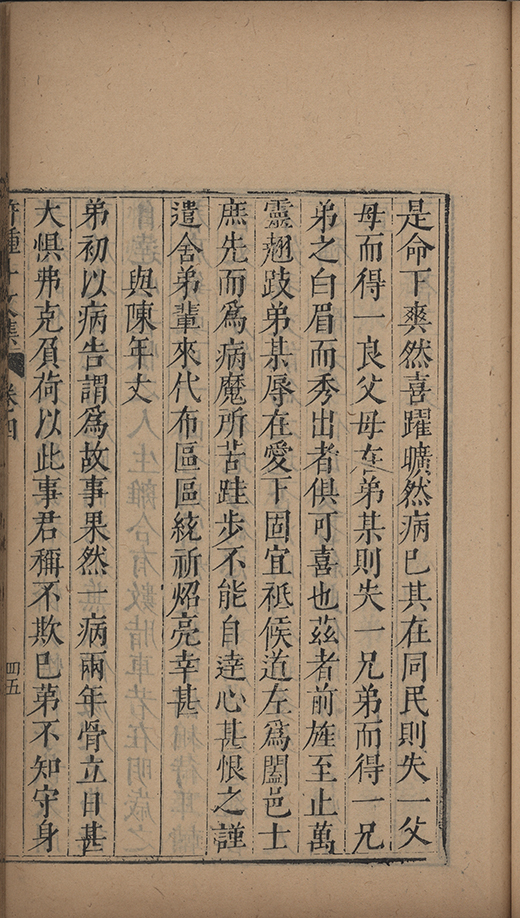 是命下爽然喜躍曠然病已其在同民則失一父
母而得一良父母在弟某則失一兄弟而得一兄
弟之白眉而秀出者俱可喜也茲者前旌至止萬
靈翹跂弟某辱在愛下固宜祗候道左爲闔邑士
庶先而爲病魔所苦跬步不能自達心甚恨之謹
遣舍弟輩來代布區區統祈炤亮幸甚
與陳年丈
弟初以病告謂爲故事果然一病兩年骨立日甚
大惧弗克負荷以此事君稱不欺已第不知守身
文集
卷四
四五